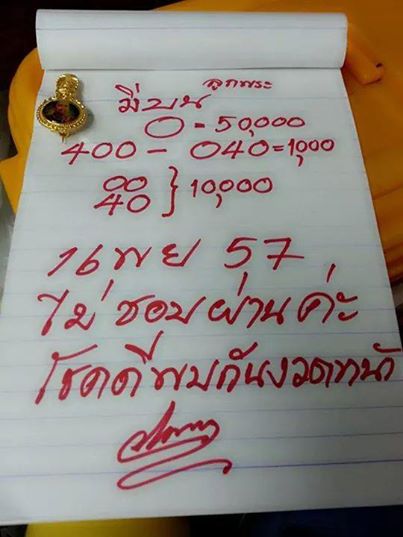 ลูกพระ
มี่บน
0 = 50,000
400 - 040 = 1,000
00
40 } 10,000
16 พย 57
ไม่ชอบผ่านค่ะ
โชคดีพบกันงวดหน้า